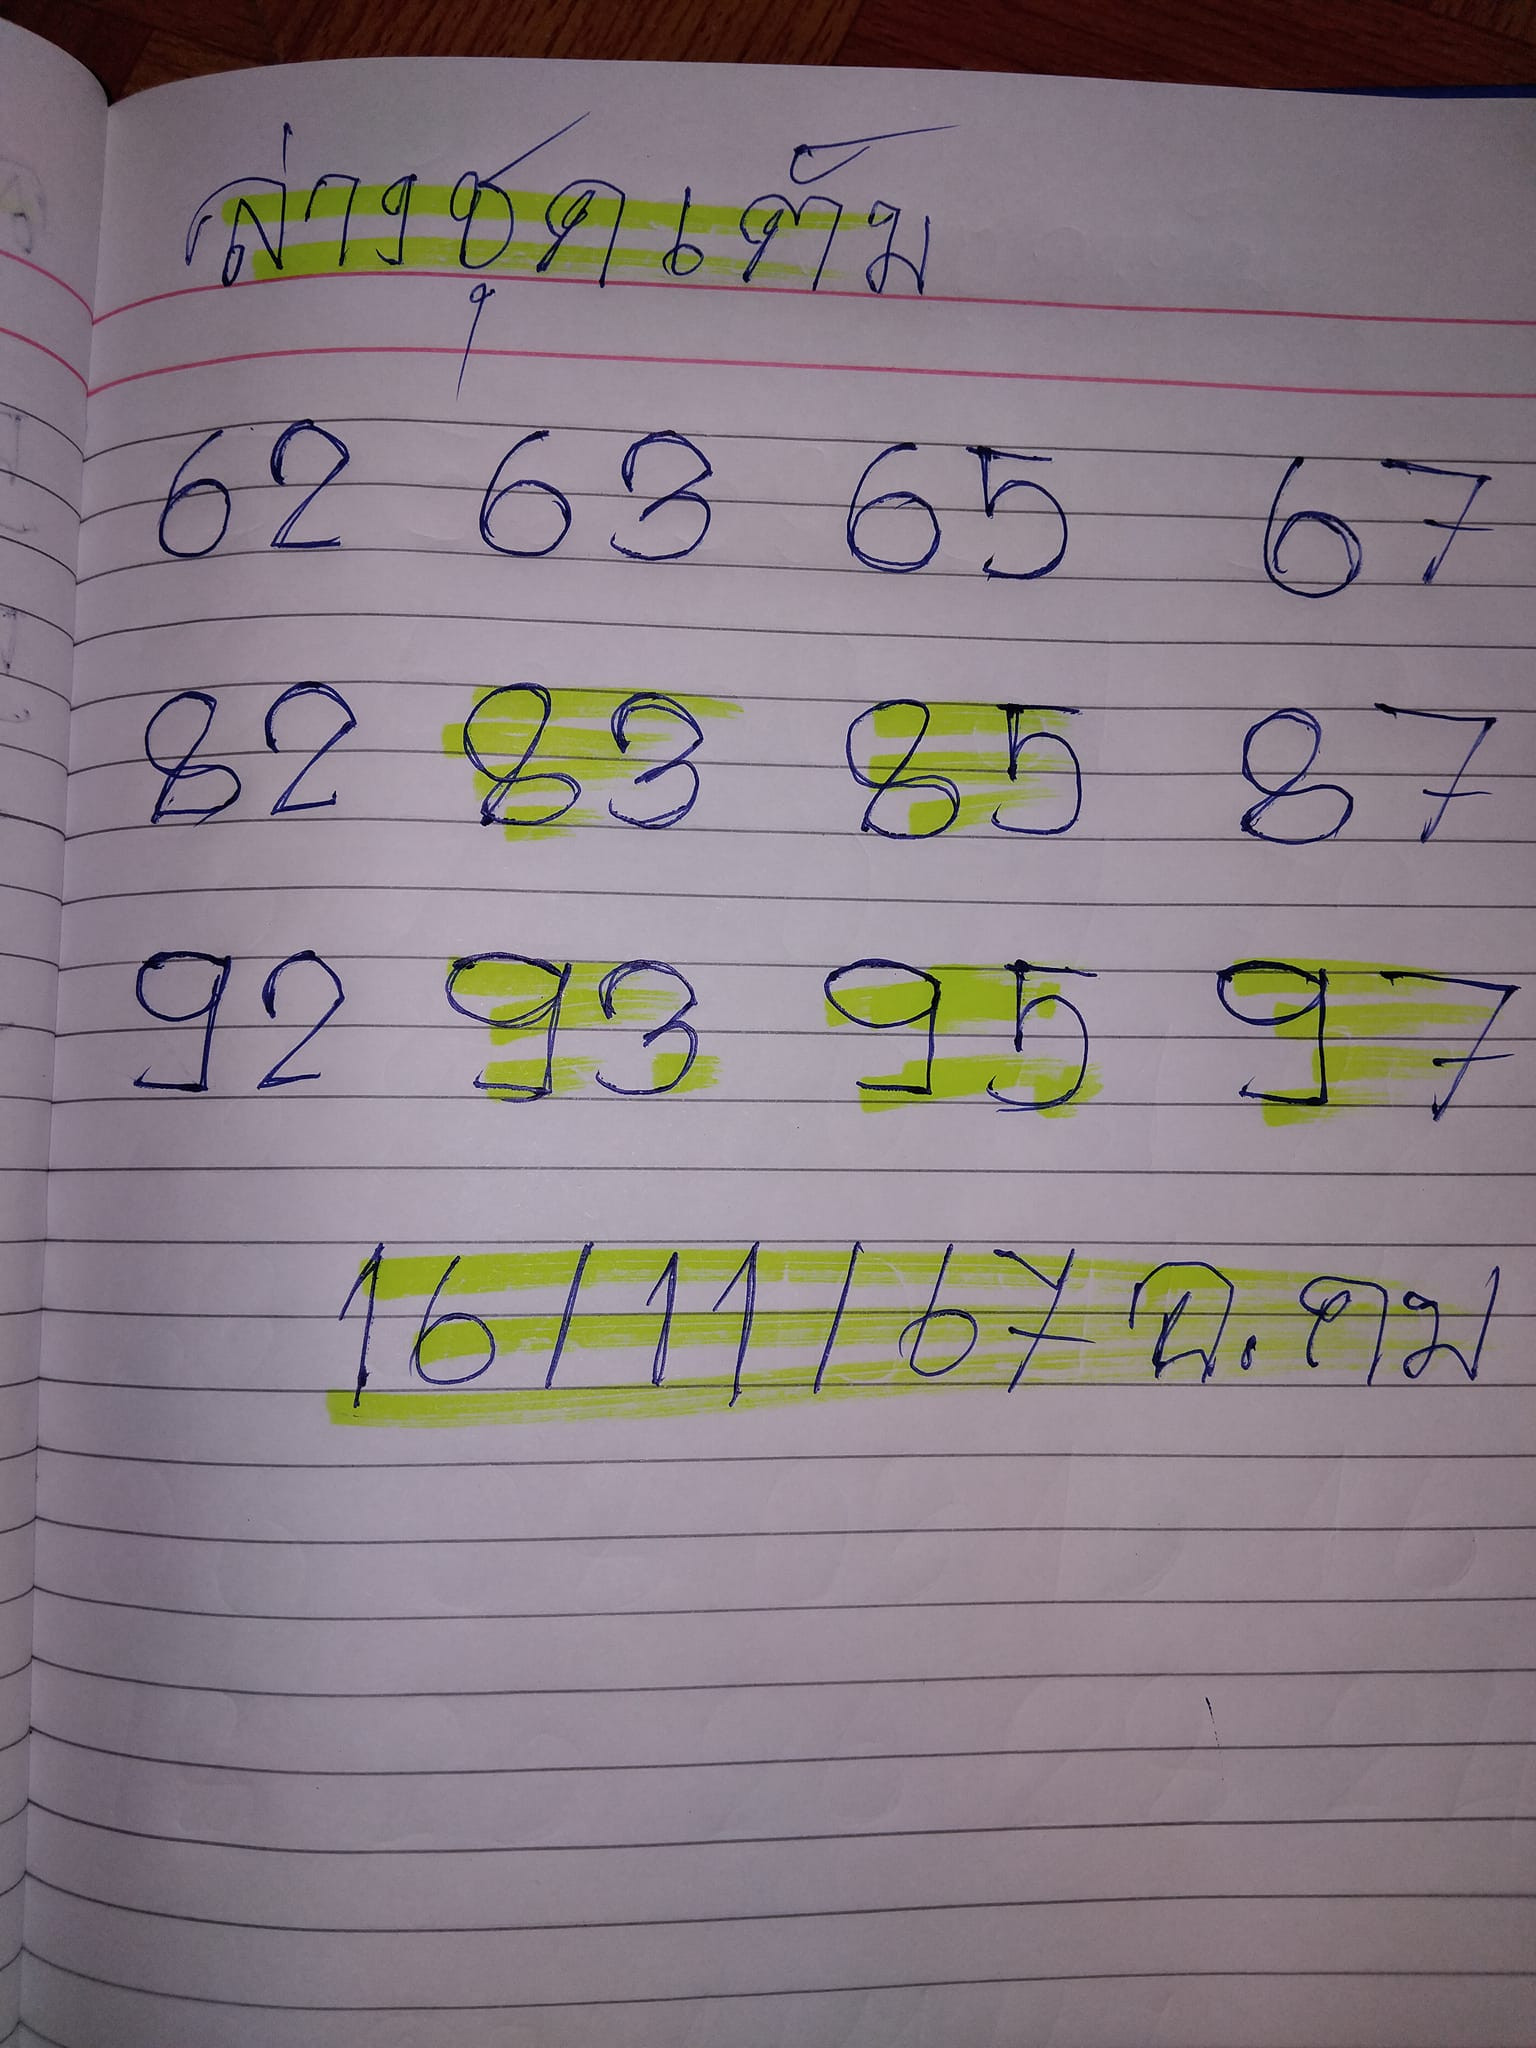 ล่างชุดเต็ม
62 63 65 67
82 83 85 87
92 93 95 97
16/11/67 อ.คม